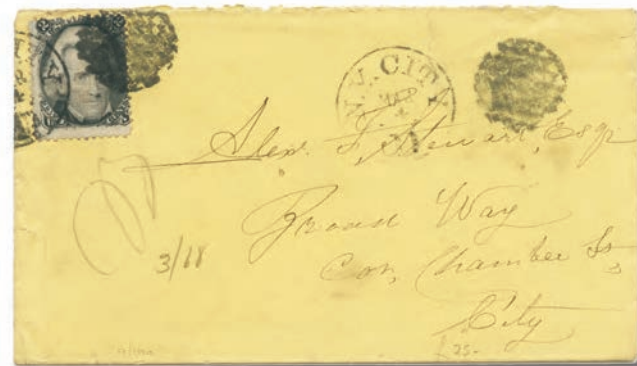 N.Y. CITY
Alex. T. Stewart, Esqr
Broad Way
Cor, Chamber St,
City
3/18
25-